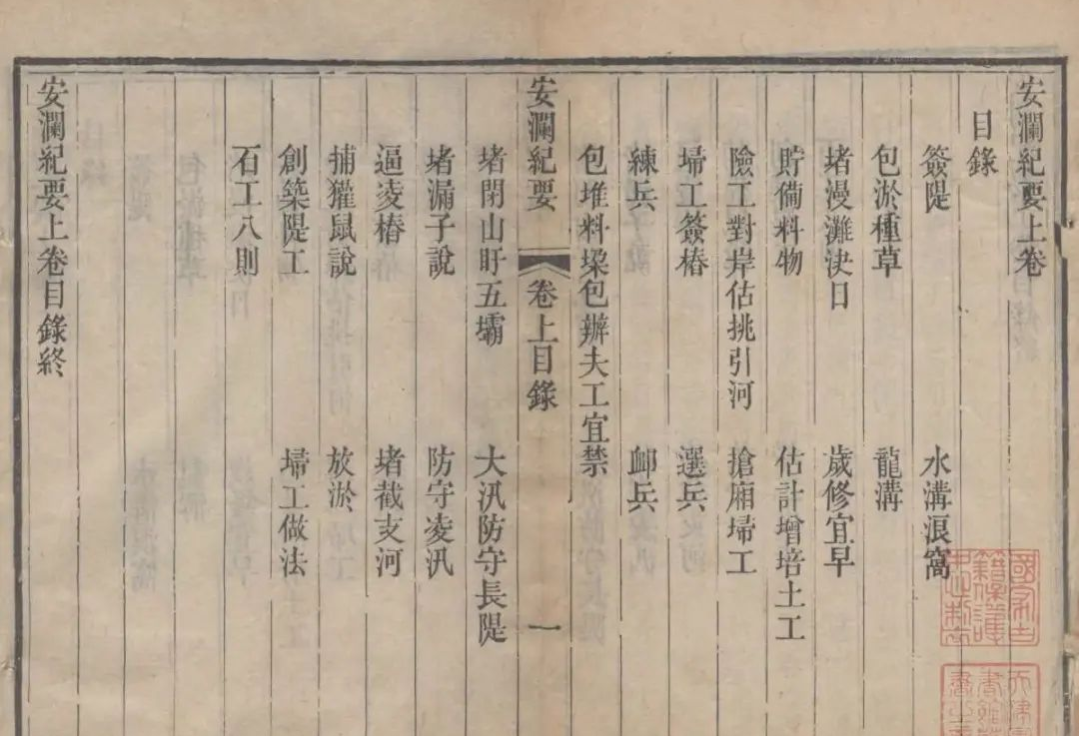 安瀾紀要上卷
目錄
簽隄　水溝浪窩
包淤種草　龍溝
堵漫灘決口　歲修宜早
貯備料物　估計增培土工
險工對岸估挑引河　搶廂埽工
埽工簽樁　選兵
練兵　卹兵
包堆料垜包辦夫工宜禁
安瀾紀要　卷上目錄　一
堵閉山盱五壩　大汛防守長隄
堵漏子說　防守凌汛
逼凌樁　堵截支河
捕獾鼠說　放淤
創築隄工　埽工做法
石工八則
安瀾紀要上卷目錄終